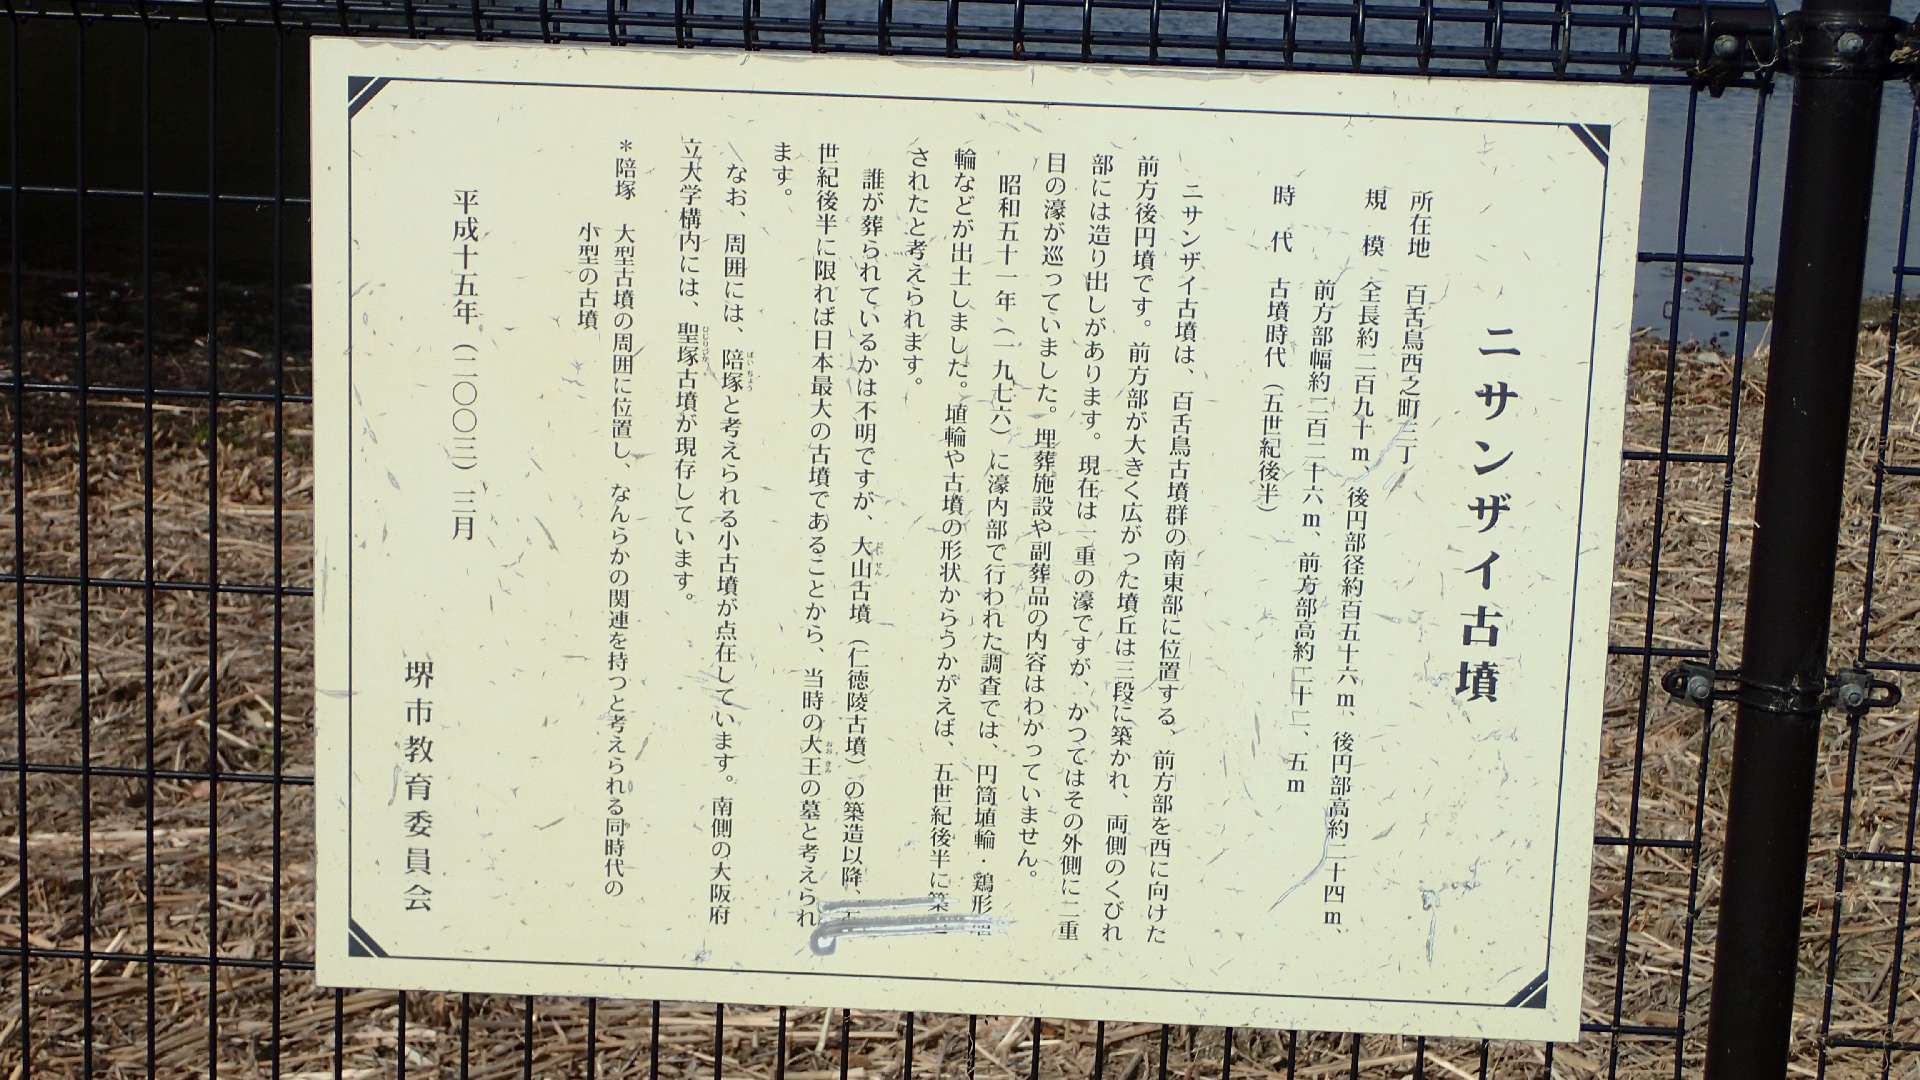 ニサンザイ古墳
所在地 百舌鳥西之町三丁
規模 全長約二百九十m、後円部径約百五十六m、後円部高約二十四m、
前方部幅約二百二十六m、前方部高約二十二、五m
時代 古墳時代（五世紀後半）
ニサンザイ古墳は、百舌鳥古墳群の南東部に位置する、前方部を西に向けた
前方後円墳です。前方部が大きく広がった墳丘は三段に築かれ、両側のくびれ
部には造り出しがあります。現在は一重の濠ですが、かつてはその外側に二重
目の濠が巡っていました。埋葬施設や副葬品の内容はわかっていません。
昭和五十一年（一九七六）に濠内部で行われた調査では、円筒埴輪・鶏形
輪などが出土しました。埴輪や古墳の形状からうかがえば、五世紀後半に築
されたと考えられます。
誰が葬られているかは不明ですが、大山古墳（仁徳陵古墳）の築造以降、
世紀後半に限れば日本最大の古墳であることから、当時の大王の墓と考えられ
ます。
なお、周囲には、陪塚と考えられる小古墳が点在しています。南側の大阪府
立大学構内には、聖塚古墳が現存しています。
＊陪塚 大型古墳の周囲に位置し、なんらかの関連を持つと考えられる同時代の
小型の古墳
平成十五年（二〇〇三）三月
堺市教育委員会